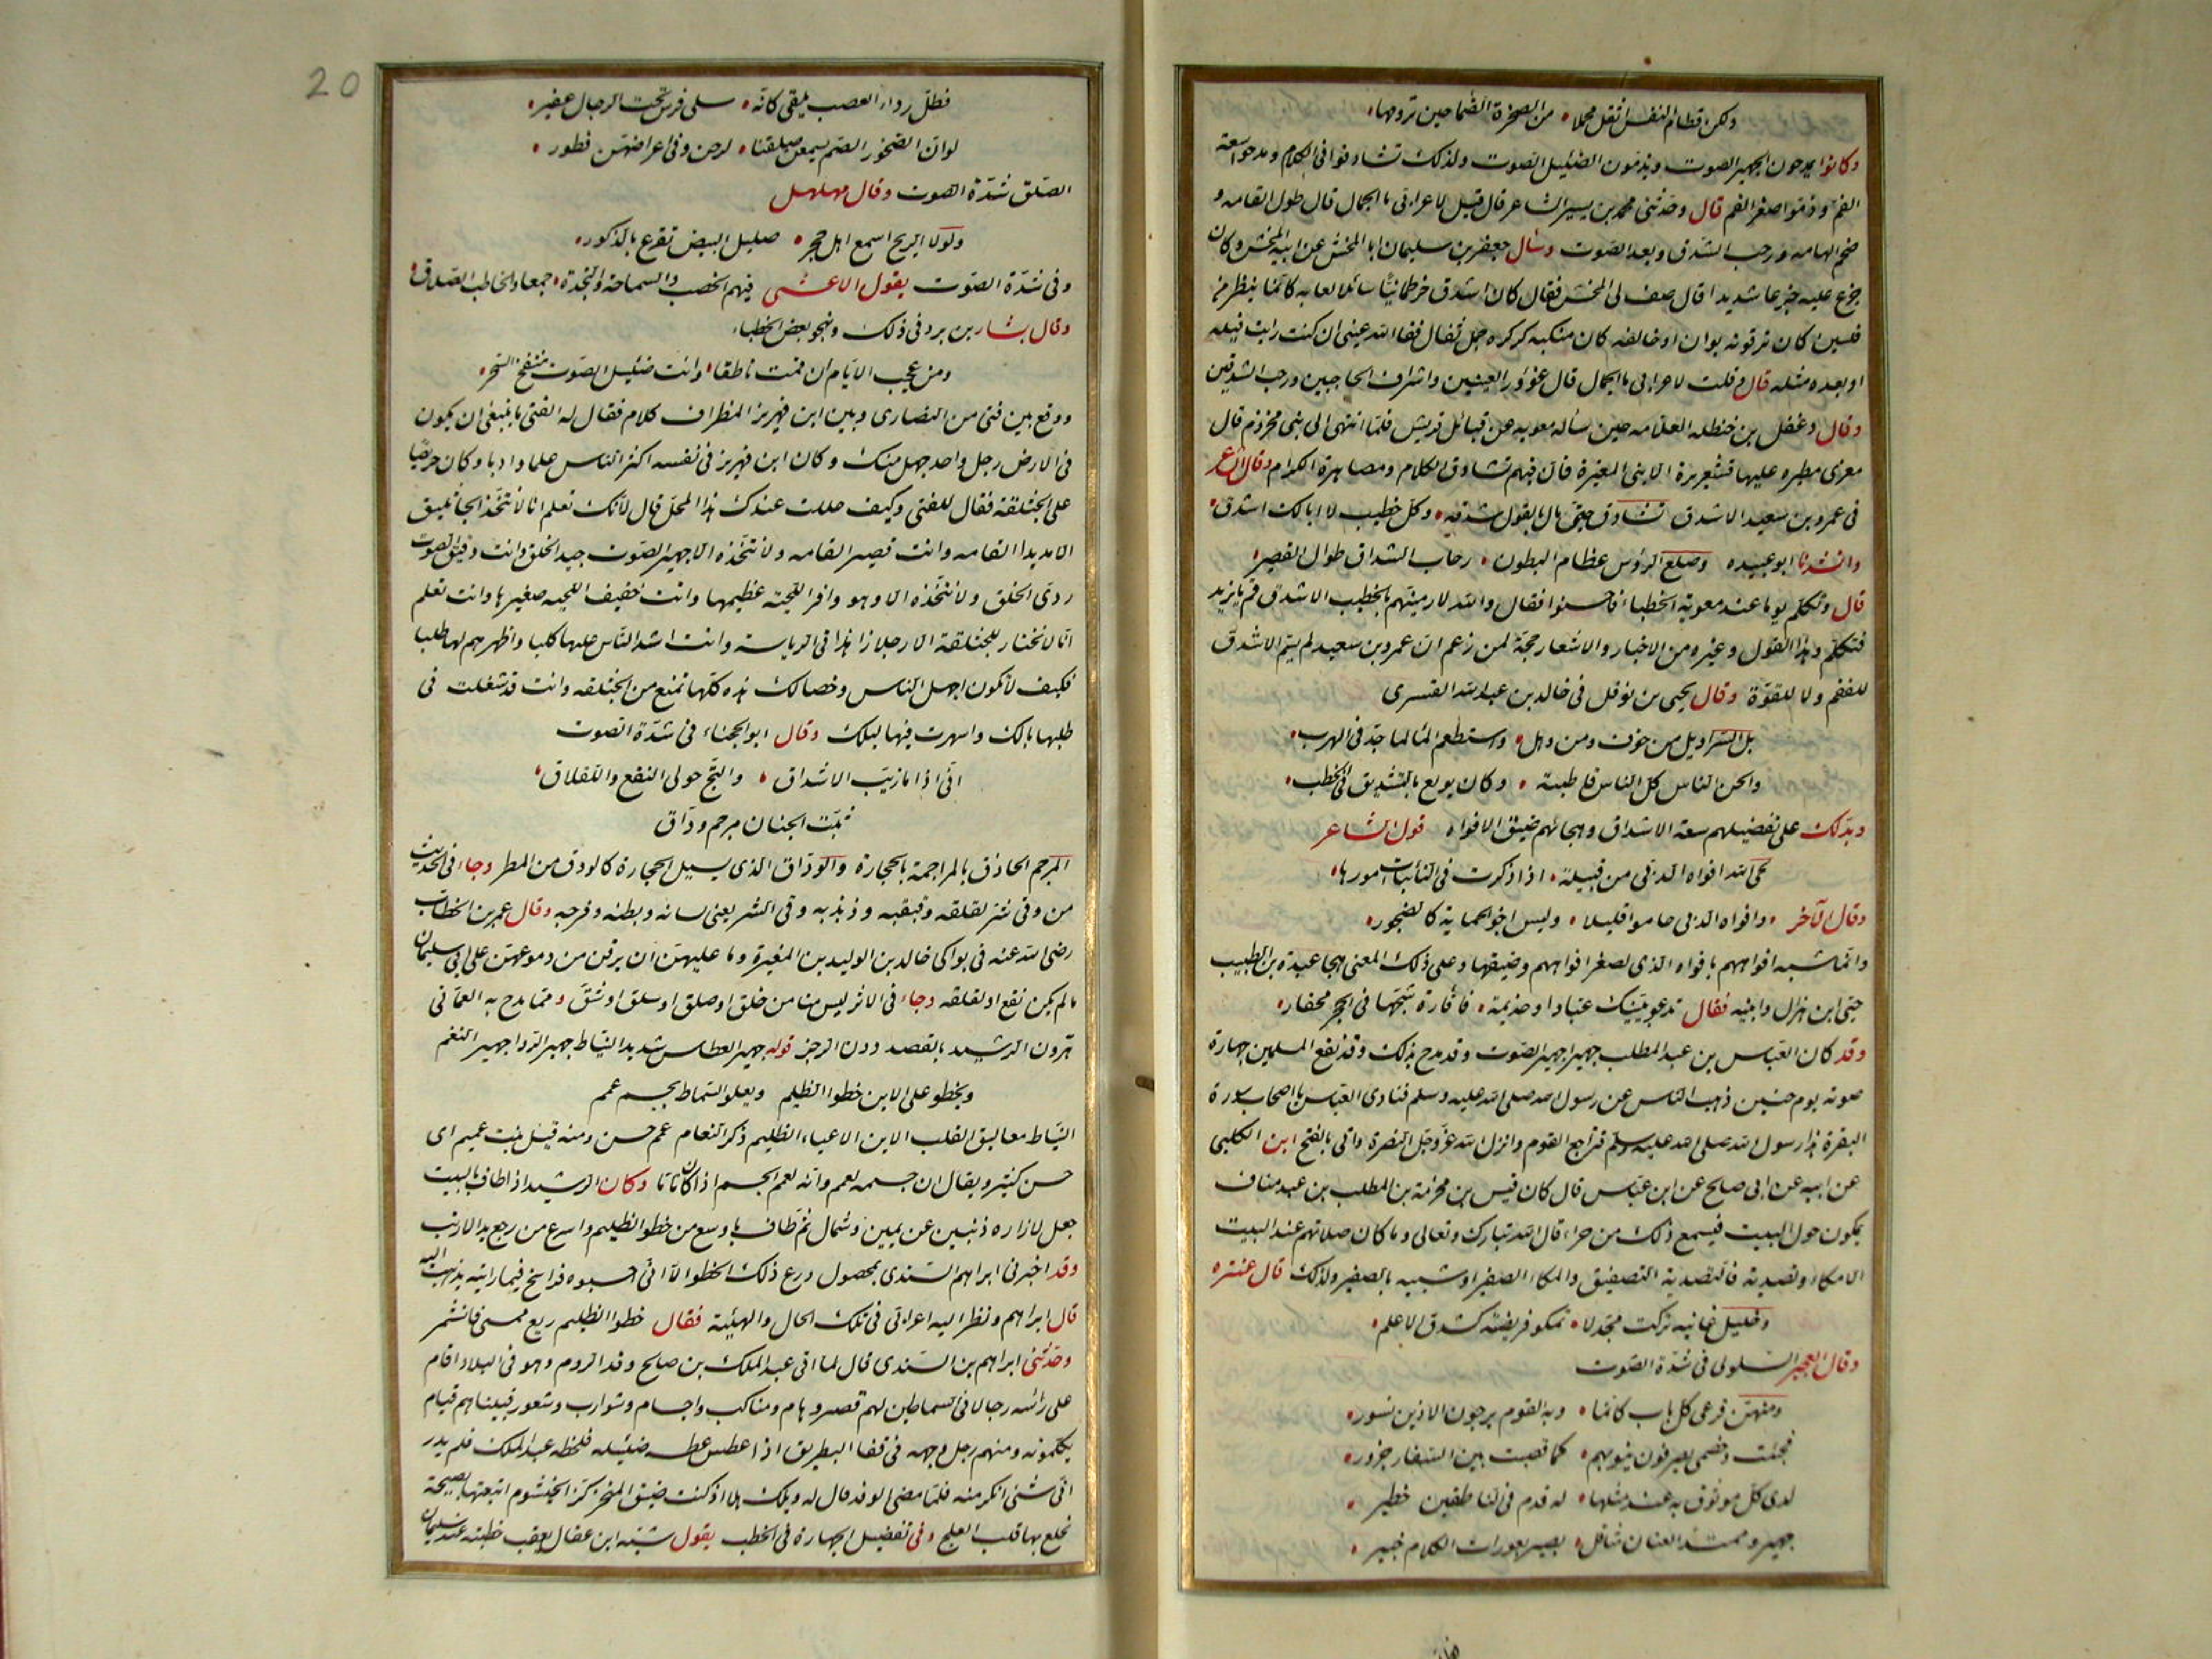 ولكن فطام النفس اثقل محملا من الصخرة الصما حين ترومها
وكانوا يمدحون الجهير الصوت ويذمون الضئيل الصوت ولذلك تشادقوا فى الكلام ومدحوا سعة
الفم وذموا صغر الفم قال وحدثنى محمد بن يسير الشاعر قال قيل لاعرابى ما الجمال قال طول القامه و
ضخم الهامه ورحب الشدق وبعد الصوت وسأل جعفر بن سليمان ابا المخش عن ابنه المخش وكان
جزع عليه جزعا شديدا قال صف لى المخش فقال كان اشدق خرطمانيًا سائلا لعابه كانما ينظر من
قلسين كان ترقوته بوان او خالفه كان منكبه كركرة جمل ثفال فقأ الله عينى ان كنت رايت قبله
او بعده مثله قال وقلت لاعرابى ما الجمال قال غؤور العينين واشراف الحاجبين ورحب الشدقين
وقال دغفل بن حنظله العلامه حين سأله معويه عن قبائل قريش فلما انتهى الى بنى مخزوم قال
معزى مطيره عليها قشعريرة الا بنى المغيرة فان فيهم تشادق الكلام ومصاهرة الكرام وقال الشاعر
فى عمرو بن سعيد الاشدق تشادق حتى مال بالقول شدقه وكل خطيب لا ابالك اشدق
وانشدنا ابو عبيده وصلع الرؤس عظام البطون رحاب الشداق طوال القصر
قال وتكلم يوما عند معوية الخطباء فاحسنوا فقال والله لارمينهم بالخطيب الاشدق قم يا يزيد
فتكلم وهذا القول وغيره من الاخبار والاشعار حجة لمن زعم ان عمرو بن سعيد لم يسم الاشدق
للفقم ولا للقوة وقال يحيى بن نوفل فى خالد بن عبد الله القسرى
بل السراويل من خوف ومن وهل واستطعم الما لما جد فى الهرب
والحن الناس كل الناس قاطبة وكان يولع بالتشديق فى الخطب
ويدلك على تفضيلهم سعة الاشداق وهجائهم ضيق الافواه قول الشاعر
لحى الله افواه الدبى من قبيلة اذا ذكرت فى النائبات امورها
وقال الآخر وافواه الدبى حاموا قليلا وليس اخو الحماية كالضجور
وانما شبه افواههم بافواه الدى لصغر افواههم وضيقها وعلى ذلك المعنى هجا عبدة بن الطبيب
حيى ابن هزال وابنيه فقال تدعو بنيك عبادا وحذيمة فا فارة شجها فى الجحر محفار
وقد كان العباس بن عبد المطلب جهيرا جهير الصوت وقد مدح بذلك وقد نفع المسلمين جهارة
صوته يوم حنين ذهب الناس عن رسول الله صلى الله عليه وسلم فنادى العباس يا اصحاب سورة
البقرة هذا رسول الله صلى الله عليه وسلم فتراجع القوم وانزل الله عز وجل النصرة واتى بالفتح ابن الكلبى
عن ابيه عن ابى صالح عن ابن عباس قال كان قيس بن مخرمة بن المطلب بن عبد مناف
يمكون حول البيت فيسمع ذلك من حراء قال الله تبارك وتعالى وما كان صلاتهم عند البيت
الا مكاء وتصدية فالتصدية التصفيق والمكاء الصفير او شبيه بالصفير ولذلك قال عنتره
وخليل غانيه تركت مجدلا تمكو فريصته كشدق الاعلم
وقال العجير السلولى فى شدة الصوت
ومنهن قرعى كل باب كانما به القوم يرجون الاذين نسور
فجئت وخصمى يصرفون نيوبهم كما قصبت بين الشفار جزور
لدى كل موثوق به عند مثلها له قدم فى الناطقين خطير
جهير وممتد العنان مناقل بصير بعورات الكلام خبير
20
فظل رداء العصب ملقى كانه سلى فرس تحت الرجال عفير
لو ان الصخور الصم يسمعن صلقنا لرحن وفى اعراضهن فطور
الصلق شدة الصوت وقال مهلهل
ولولا الريح اسمع اهل حجر صليل البيض تقرع بالذكور
وفى شدة الصوت يقول الاعشى فيهم الخصب والسماحة والنجدة جمعا والخاطب الصلاق
وقال بشار بن برد فى ذلك ويهجو بعض الخطباء
ومن عجب الايام ان قمت ناطقا وانت ضئيل الصوت منتفخ السحر
ووقع بين فتى من النصارى وبين ابن فهريز المطران كلام فقال له الفتى ما ينبغى ان يكون
فى الارض رجل واحد جهل منك وكان ابن فهريز فى نفسه اكثر الناس علما وادبا وكان حريصًا
على الجثلقة فقال للفتى وكيف حللت عندك هذا المحل قال لانك تعلم انا لا نتخذ الجاثليق
الا مديدا القامه وانت قصير القامه ولا نتخذه الا جهير الصوت جيد الخلق وانت دقيق الصوت
ردى الخلق ولا نتخذه الا وهو وافر اللحية عظيمها وانت خفيف اللحيه صغيرها وانت تعلم
انا لا نختار للجثلقة الا رجلا زاهدا فى الرياسة وانت اشد الناس عليها كلبا واظهرهم لها طلبا
فكيف لا تكون اجهل الناس وخصالك هذه كلها تمنع من الجثلقه وانت قد شغلت فى
طلبها بالك واسهرت فيها ليلك وقال ابو الحجناء فى شدة الصوت
انى اذا ما زبب الاشداق والتج حولى النقع واللقلاق
ثبت الجنان مرجم وداق
المرجم الحاذق بالمراجمة بالحجارة والوداق الذى يسيل الحجارة كالودق من المطر وجاء فى الحديث
من وقى شر لقلقه وقبقبه وذبذبه وقى الشر يعنى لسانه وبطنه وفرجه وقال عمر بن الخطاب
رضى الله عنه فى بواكى خالد بن الوليد بن المغيرة وما عليهن ان يرقن من دموعهن على ابى سليمان
ما لم يكن نقع او لقلقه وجاء فى الاثر ليس منا من حلق او صلق او سلق او شق ومما مدح به العمانى
هرون الرشيد بالقصد دون الرجز قوله جهير العطاس شديد النياط جهير الروا جهير النغم
ويخطو على الاين خطو الظليم ويعلو السماط بجسم عمم
النياط معاليق القلب الاين الاعياء الظليم ذكر النعام عمم حسن ومنه قيل نبت عميم اى
حسن كثير ويقال ان جسمه لعمم وانه لعمم الجسم اذا كان تاما وكان الرشيد اذا طاف بالبيت
جعل لازاره ذنبين عن يمين وشمال ثم طاف باوسع من خطو الظليم واسرع من رجع يد الارنب
وقد اخبرنى ابراهيم السندى بمحصول درع ذلك الخطو الا انى احسبوه فراسخ فيما رايته يذهب اليه
قال ابراهيم ونظر اليه اعرابى فى تلك الحال والهيئة فقال خطو الظليم ريع ممسى فانشمر
وحدثنى ابراهيم بن السندى قال لما اتى عبد الملك بن صالح وفد الروم وهو فى البلاد اقام
على راسه رجالا فى السماطين لهم قصر وهام ومناكب واجسام وشوارب وشعور فبيناهم قيام
يكلمونه ومنهم رجل وجهه فى قفا البطريق اذا عطس عطسه ضئيله فلحظه عبد الملك فلم يدر
اى شئ انكر منه فلما مضى الوفد قال له ويلك هلا اذ كنت ضيق المنخر كز الخيشوم اتبعتها بصيحة
تخلع بها قلب العلج وفى تفضيل الجهارة فى الخطب يقول شبة ابن عقال بعقب خطبته عند سليمان